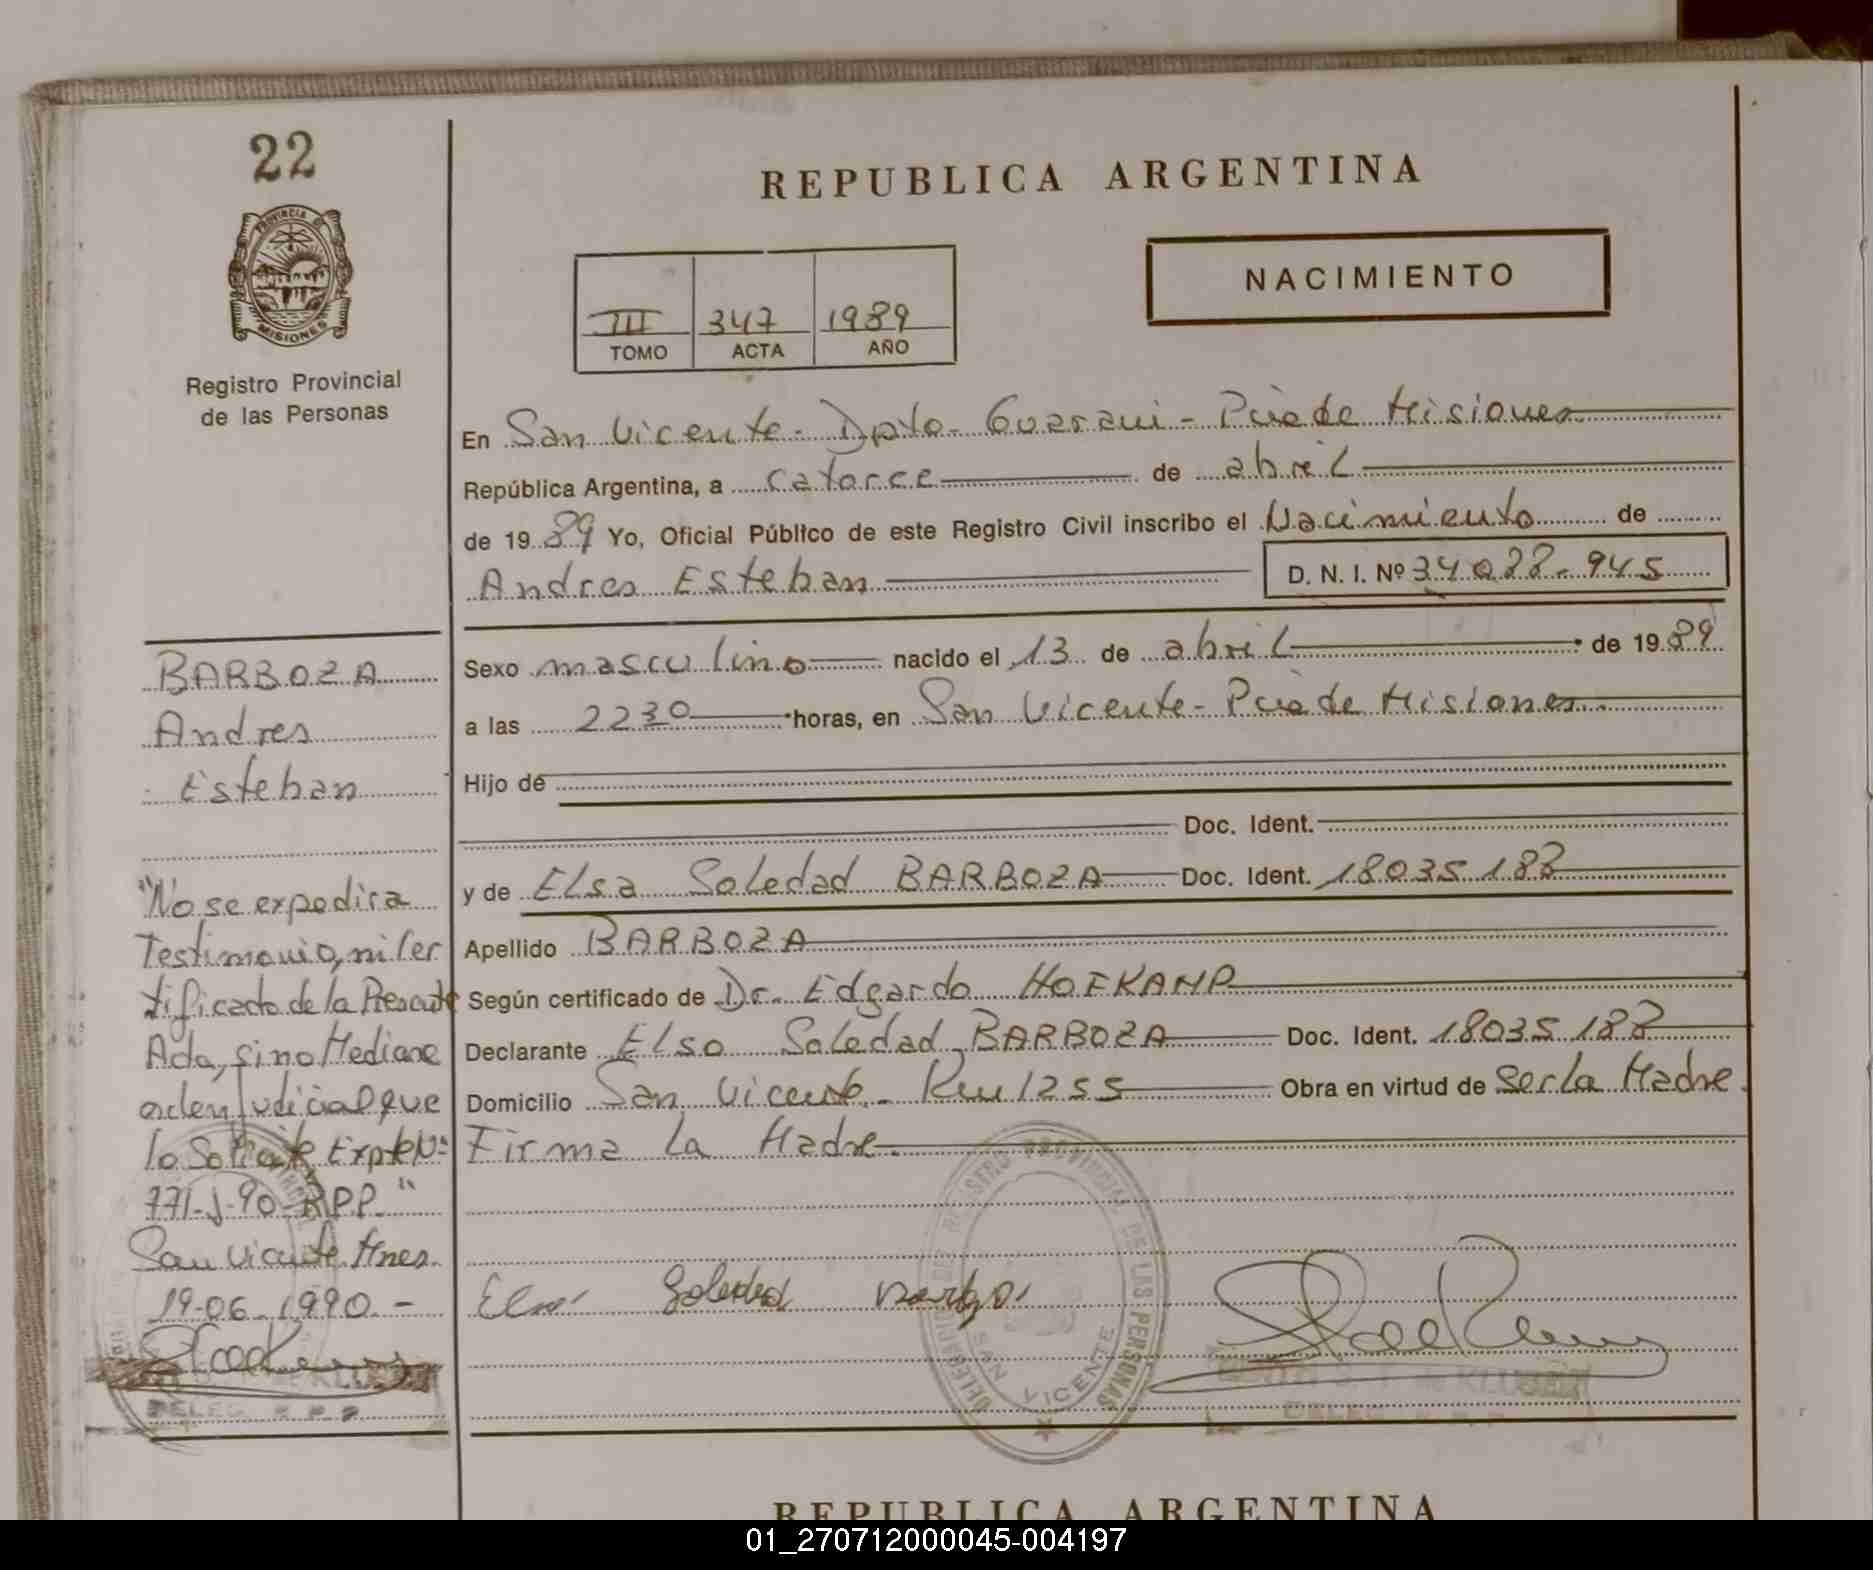 22
PROVINCIA DE
MISIONES
Registro Provincial
de las Personas
REPUBLICA ARGENTINA
NACIMIENTO
III 347 1989
TOMO ACTA AÑO
En San Vicente - Dpto - Guarani - Pcia de Misiones
República Argentina, a catorce de abril
de 1989 Yo, Oficial Público de este Registro Civil inscribo el Nacimiento de
Andres Esteban D. N. I. Nº 34.088.945
Sexo masculino nacido el 13 de abril de 1989
a las 2230 horas, en San Vicente - Pcia de Misiones
Hijo de
Doc. Ident.
y de Elsa Soledad BARBOZA Doc. Ident. 18035188
Apellido BARBOZA
Según certificado de Dr. Edgardo HOFKAMP
Declarante Elsa Soledad BARBOZA Doc. Ident. 18035188
Domicilio San Vicente - Km 1255 Obra en virtud de Ser la Madre
Firma La Madre
BARBOZA
Andres
Esteban
"No se expedira
Testimonio, ni Cer
tificado de la Presente
Acta, sino Mediane
orden Judicial que
lo Solicite, Expte Nº
771-J-90-RPP."
San Vicente Mnes.
19-06-1990.-
DELEG. R.P.P
Soledad
DELEGACION DEL REGISTRO PROVINCIAL DE LAS PERSONAS
SAN VICENTE
KLUGE
DELEG
REPUBLICA ARGENTINA
01_270712000045-004197